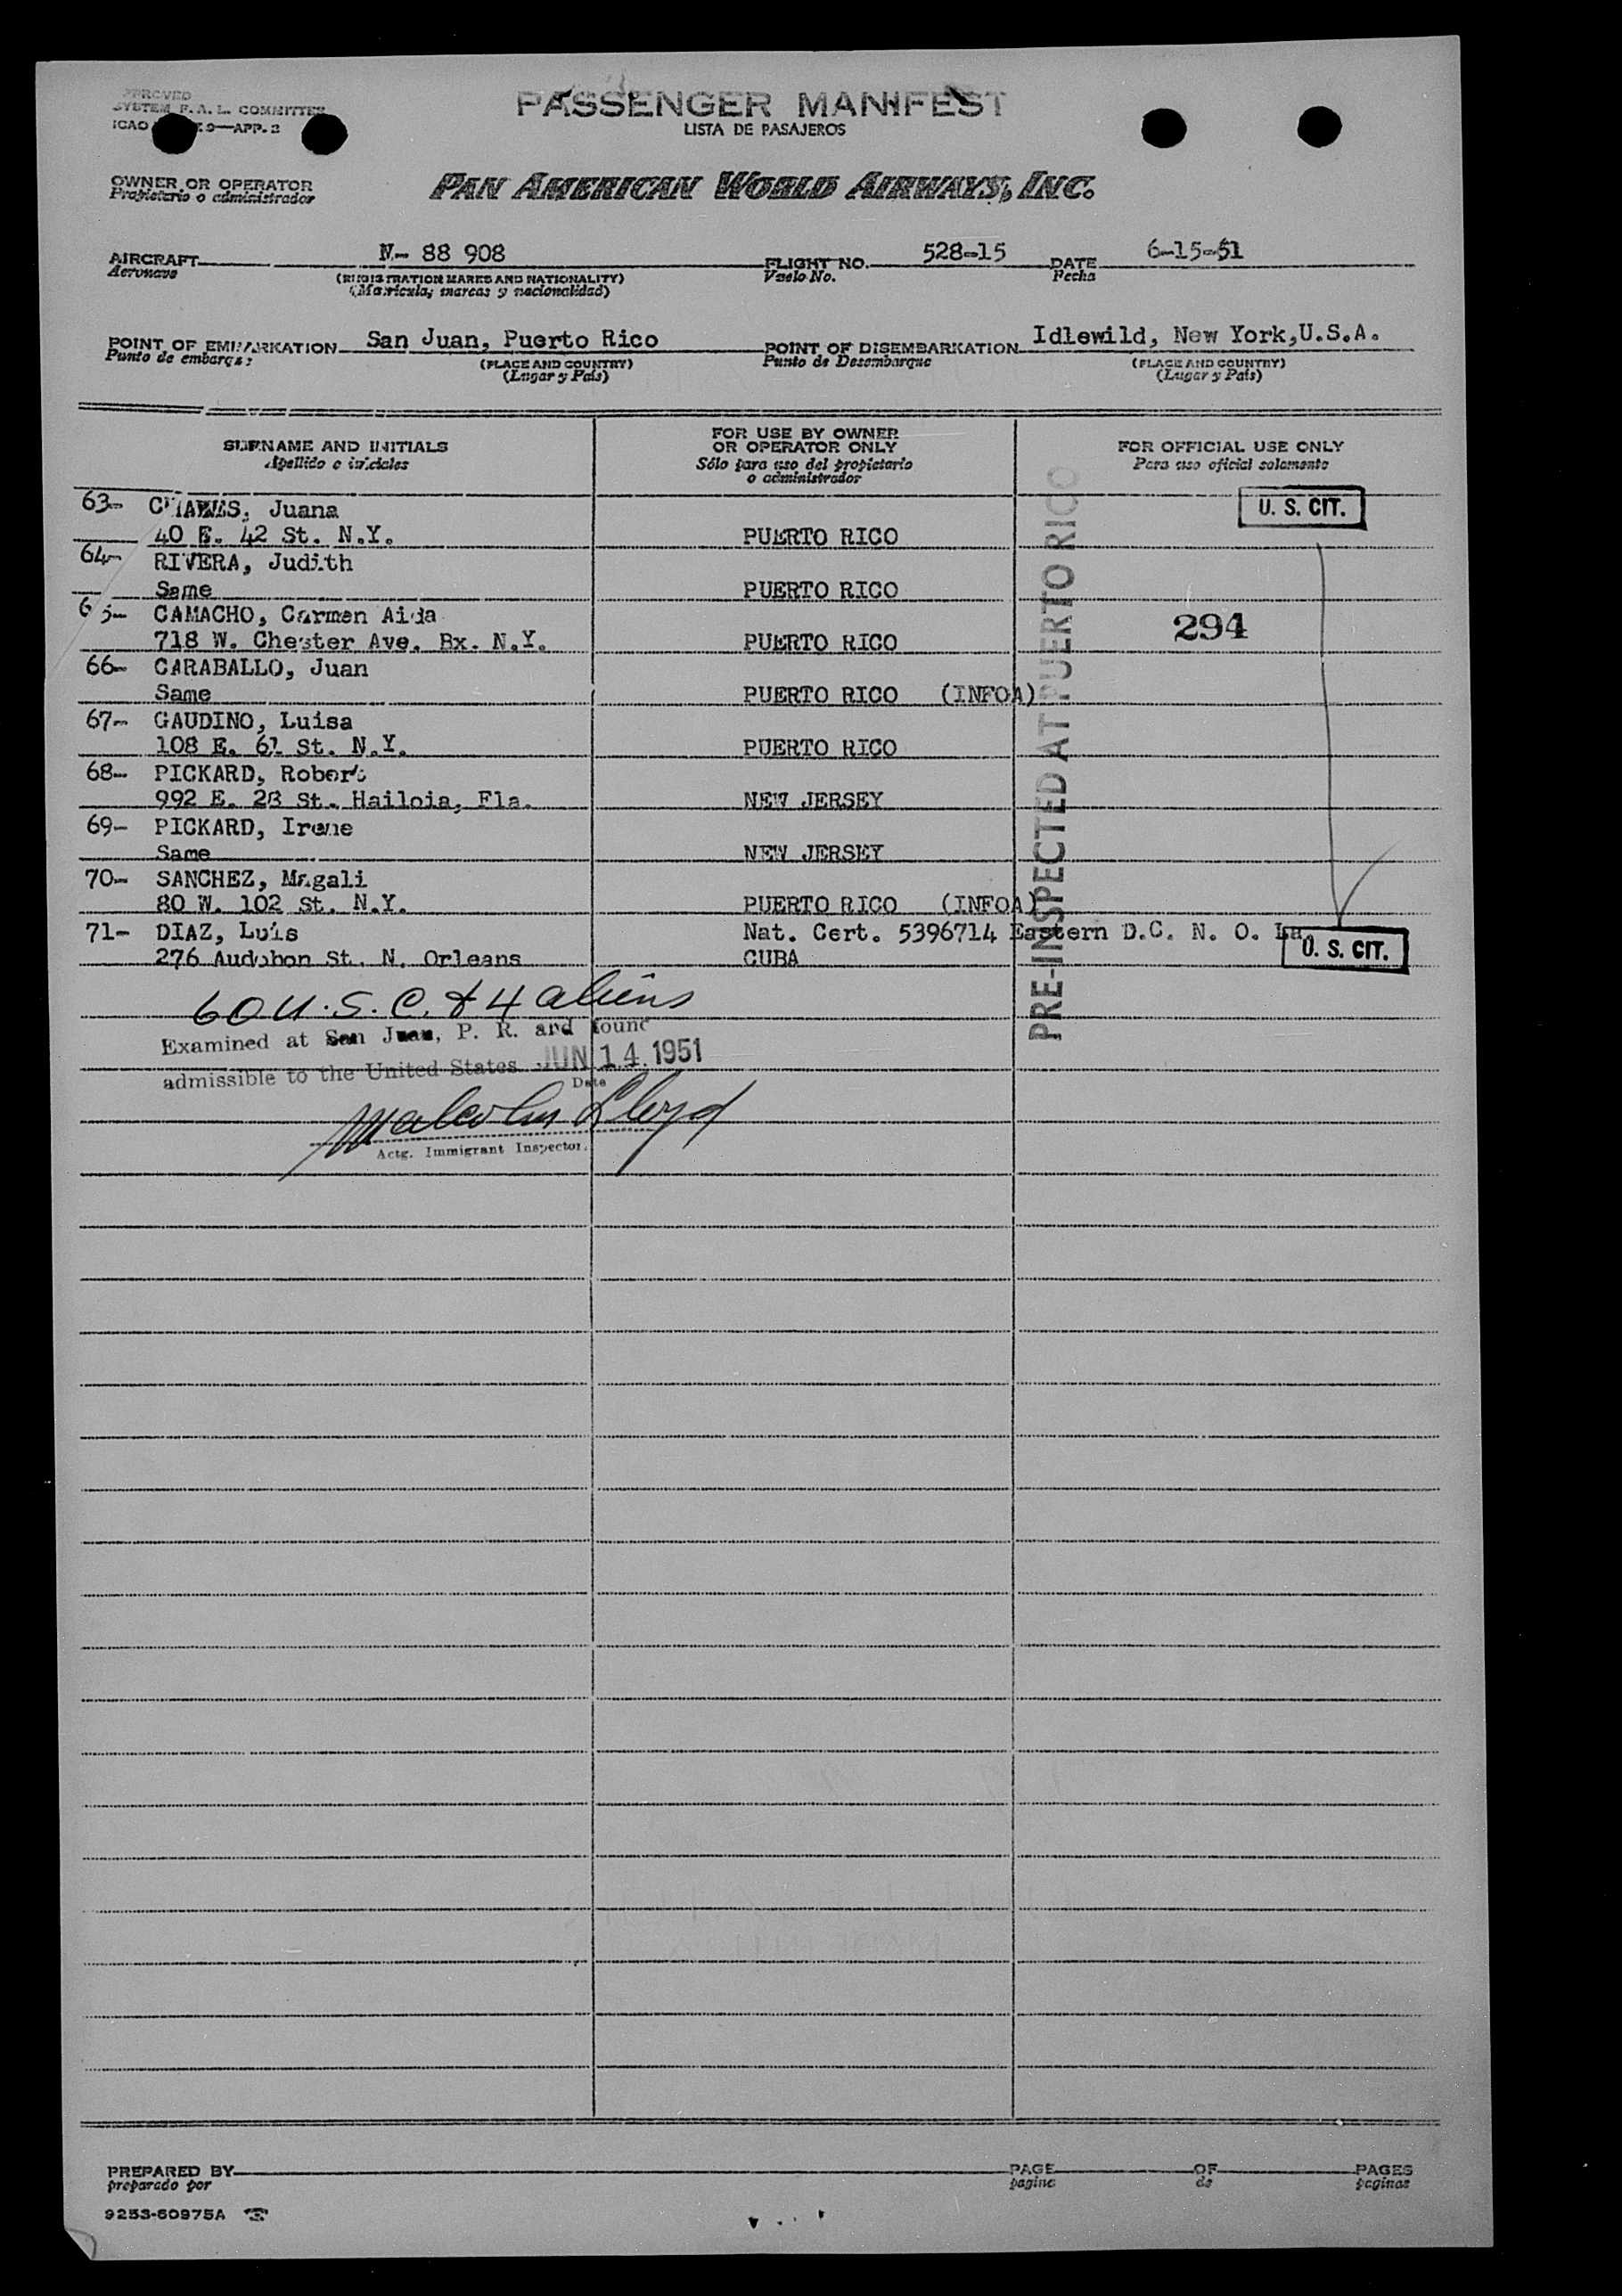 APPROVED
SYSTEM F.A.L. COMMITTEE
ICAO 9—APP. 2
PASSENGER MANIFEST
LISTA DE PASAJEROS
OWNER OR OPERATOR
Propietario o administrador
PAN AMERICAN WORLD AIRWAYS, INC.
AIRCRAFT N- 88 908 FLIGHT NO. 528-15 DATE 6-15-51
Aeronave (REGISTRATION MARKS AND NATIONALITY) Vuelo No. Fecha
(Matricula, marcas y nacionalidad)
POINT OF EMBARKATION San Juan, Puerto Rico POINT OF DISEMBARKATION Idlewild, New York,U.S.A.
Punto de embarque (PLACE AND COUNTRY) Punto de Desembarque (PLACE AND COUNTRY)
(Lugar y País) (Lugar y País)
SURNAME AND INITIALS FOR USE BY OWNER OR OPERATOR ONLY FOR OFFICIAL USE ONLY
Apellido e iniciales Sólo para uso del propietario o administrador Para uso oficial solamente
63- Juana U. S. CIT.
40 E. 42 St. N.Y. PUERTO RICO
64- RIVERA, Judith
Same PUERTO RICO
65- CAMACHO, Carmen Aida 294
718 W. Chester Ave. Bx. N.Y. PUERTO RICO
66- CARABALLO, Juan
Same PUERTO RICO (INFOA)
67- GAUDINO, Luisa
108 E. 61 St. N.Y. PUERTO RICO
68- PICKARD, Robert
992 E. 28 St. Hailoia, Fla. NEW JERSEY
69- PICKARD, Irene
Same NEW JERSEY
70- SANCHEZ, Magali
80 W. 102 St. N.Y. PUERTO RICO (INFOA)
71- DIAZ, Luis Nat. Cert. 5396714 Eastern D.C. N. O. La.
276 Audubon St. N. Orleans CUBA U. S. CIT.
PRE-INSPECTED AT PUERTO RICO
60 U.S.C. & 4 aliens
Examined at San Juan, P. R. and found
admissible to the United States JUN 14 1951
Date
Malcolm Lloyd
Actg. Immigrant Inspector.
PREPARED BY PAGE OF PAGES
preparado por pagina de paginas
9253-60975A